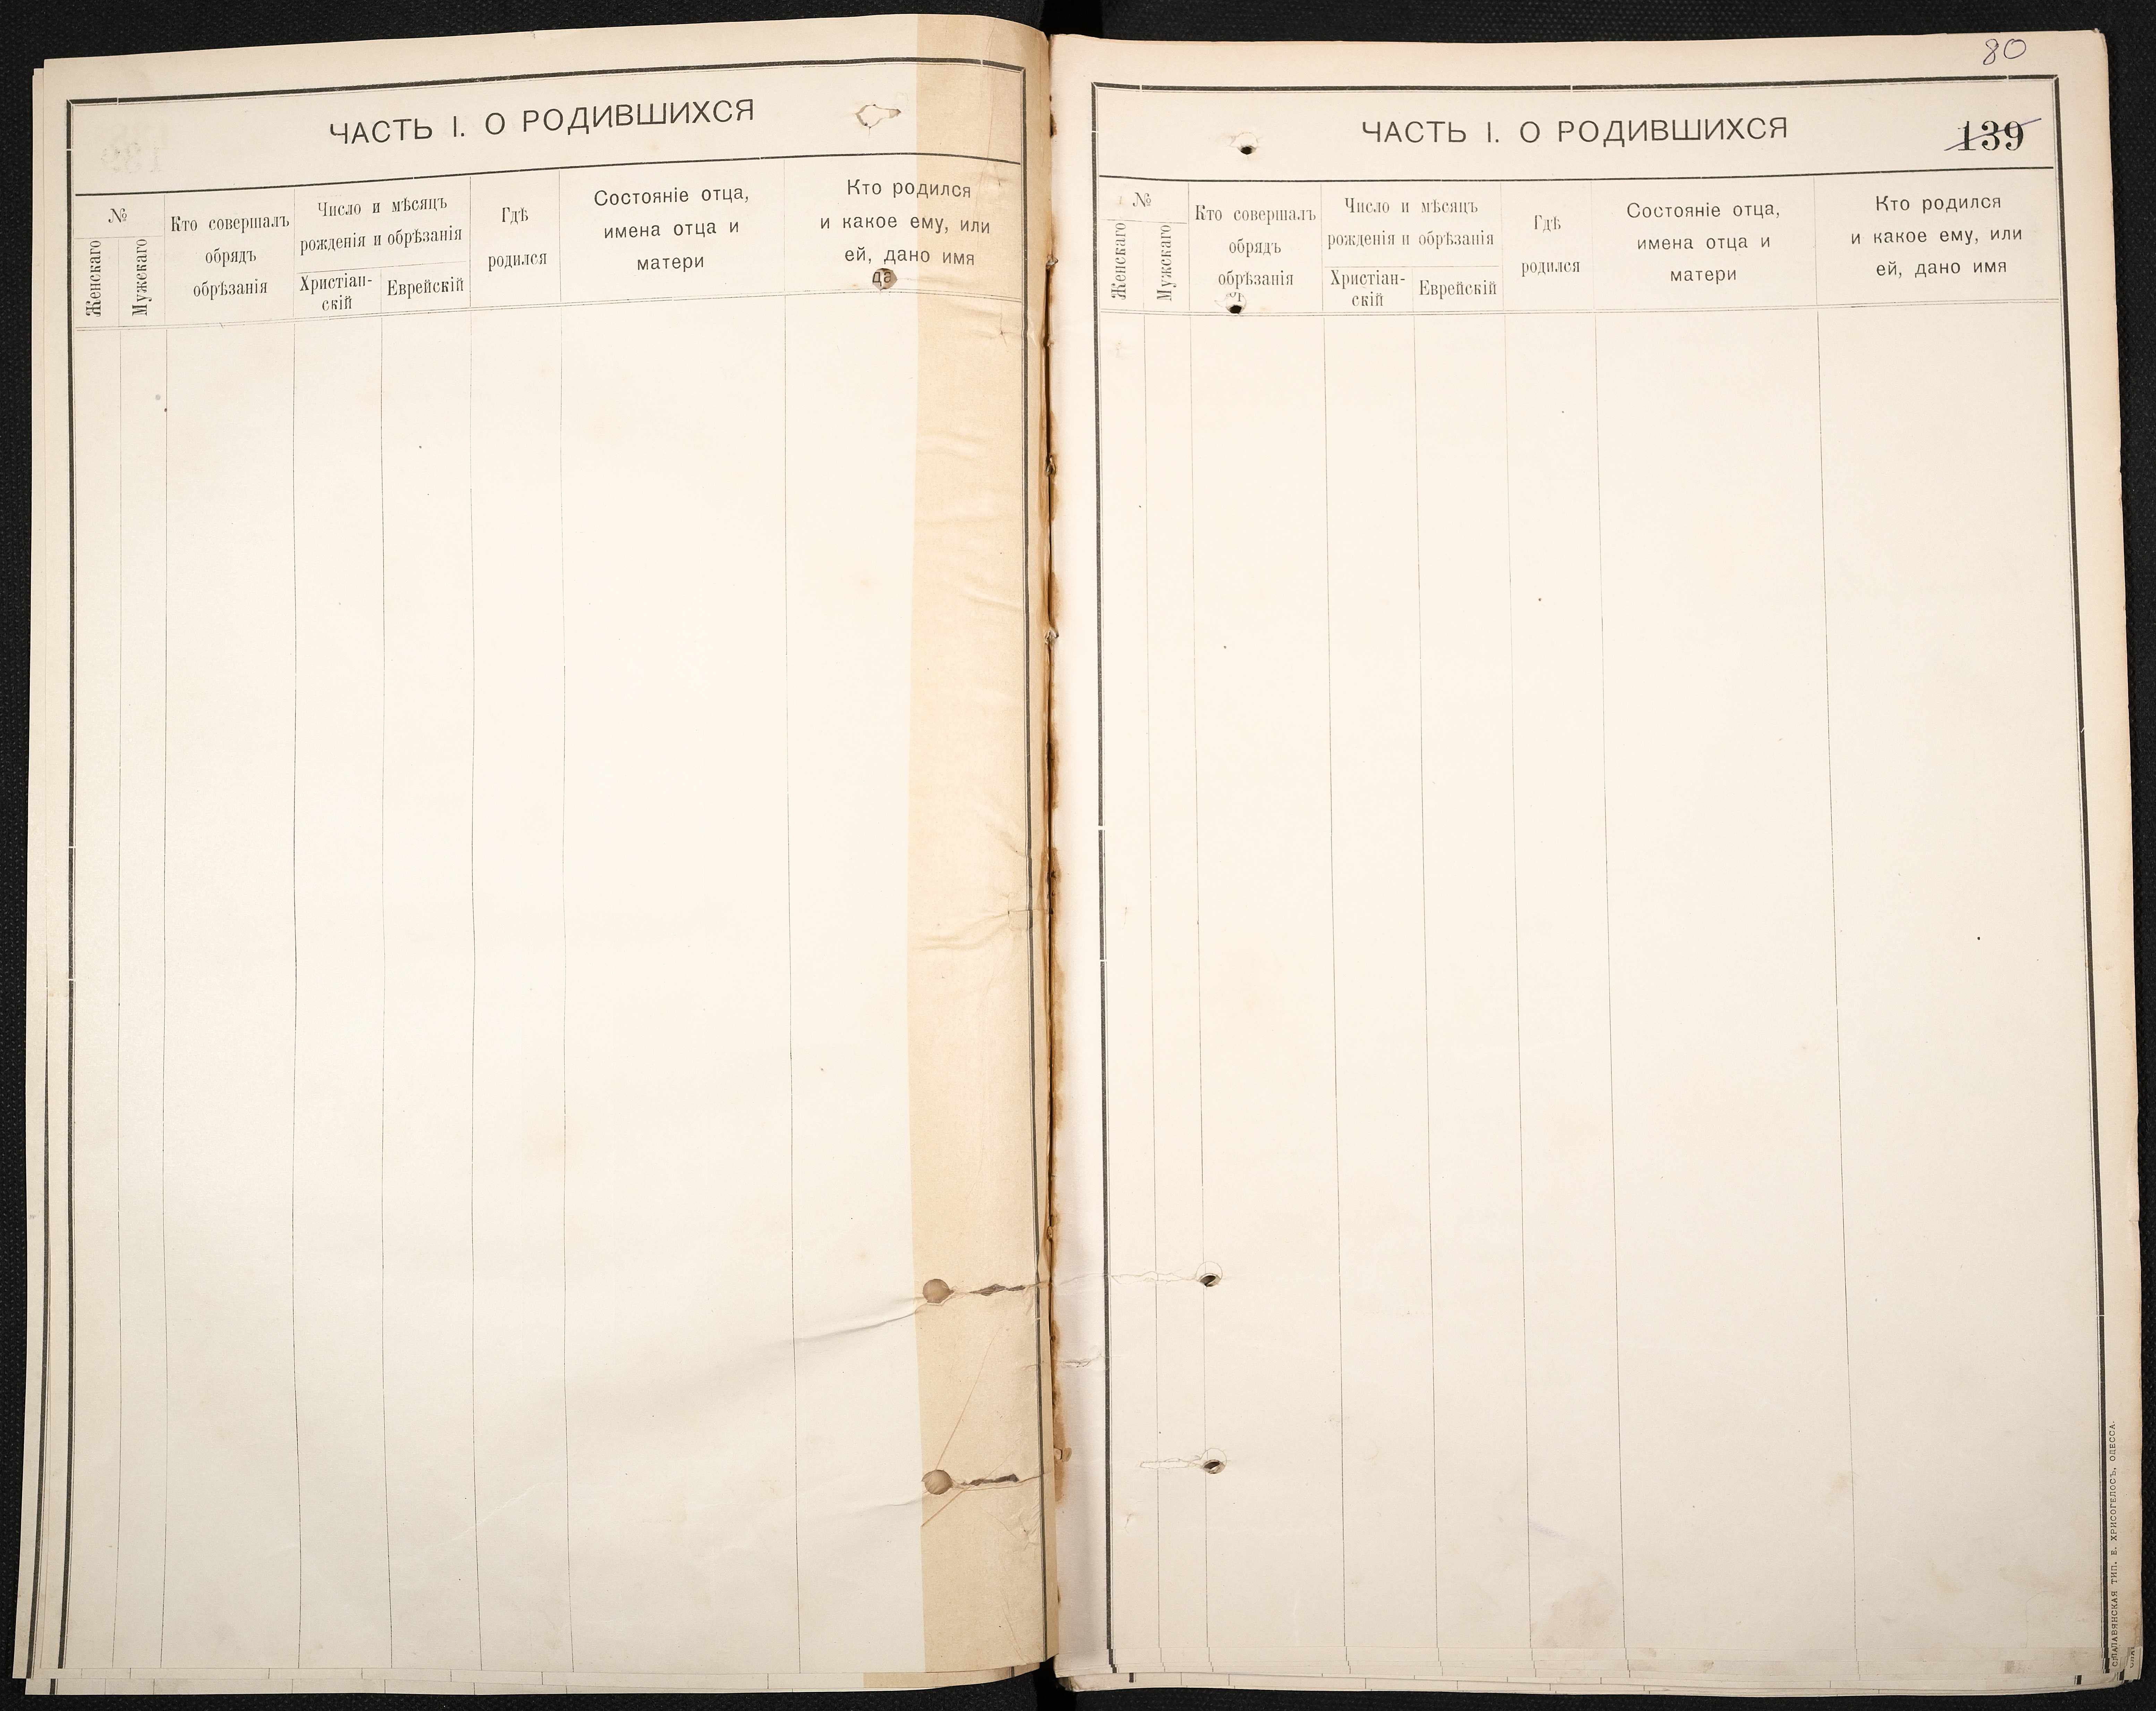 ЧАСТЬ I. О РОДИВШИХСЯ
№
Женскаго
Мужскаго
Кто совершалъ
обрядъ
обрѣзанія
Число и мѣсяцъ
рожденія и обрѣзанія
Христіан-
скій
Еврейскій
Гдѣ
родился
Состояніе отца,
имена отца и
матери
Кто родился
и какое ему, или
ей, дано имя
да
80
ЧАСТЬ I. О РОДИВШИХСЯ
139
№
Женскаго
Мужскаго
Кто совершалъ
обрядъ
обрѣзанія
Число и мѣсяцъ
рожденія и обрѣзанія
Христіан-
скій
Еврейскій
Гдѣ
родился
Состояніе отца,
имена отца и
матери
Кто родился
и какое ему, или
ей, дано имя
СЛАВЯНСКАЯ ТИП. Е. ХРИСОГЕЛОСЪ, ОДЕССА.